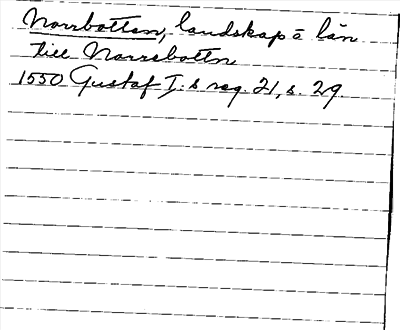 Norrbotten, landskap o län
till Norrebottn
1550 Gustaf I:s reg. 21, s. 29.